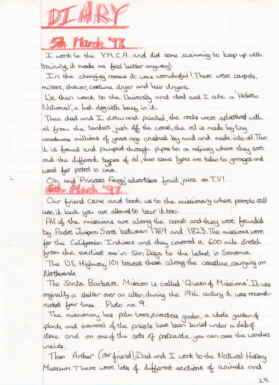 DIARY
5th March '97
I went to the Y.M.C.A. and did some swimming to keep up with
training, it made me feel better anyway!
In the changing rooms it was wonderful! There were carpets,
mirrors, shower, costume dryer and hair dryers.
We then went to the University and dad and I ate a 'Hebrew
National', a hot dog with bun in it.
Then dad and I drew and painted, the rocks were splattered with
oil from the tankers just off the coast, the oil is made by tiny
creatures millions of years ago crushed by mud and made into oil. Then
it is found and pumped through pipes to a refinery where they sort
out the different types of oil, then some types are taken to garages and
used for petrol in cars.
Oh, and Princess Fergy advertises fruit juice on T.V!
6th March '97
Our friend came and took us to the missionary where people still
use it but you are allowed to tour it too.
All of the missions are along the coast and they were founded
by Padre Junipero Serra between 1769 and 1823. The missions were
for the Californian Indians and they covered a 600 mile stretch
from the earliest one in San Diego to the latest in Sonoma.
The U.S. Highway 101 traces them along the coastline carrying on
Northwards.
The Santa Barbara Mission is called 'Queen of Missions'. It was
originally a shelter over an altar during the 19th century it was
Padre no. 9.
The missionary has palm trees, monsters garden, a whole garden of
plants and several of the priests have been buried under a slab of
stone and on one of the sets of pediments, you can see the candles
inside.
Then Arthur (our friend), Dad and I went to the Natural History
Museum. There were lots of different sections of animals and